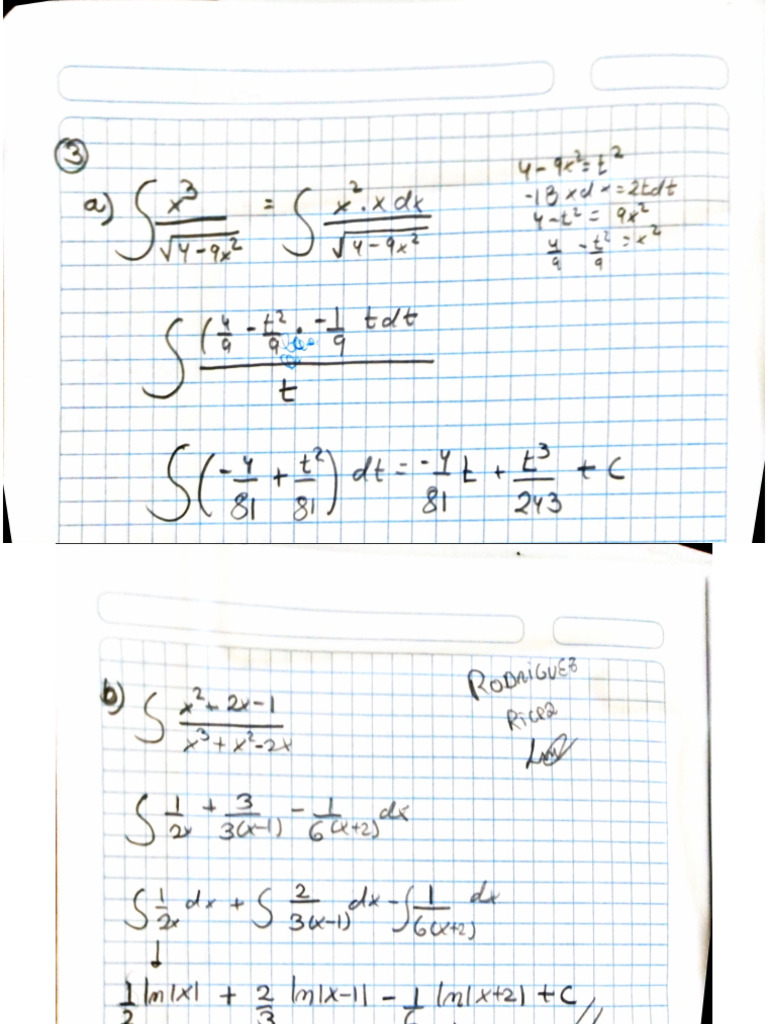 ③
a) ∫ x³/√(4-9x²) = ∫ x².x dx/√(4-9x²)
4-9x²=t²
-18xdx=2tdt
4-t² = 9x²
4/9 - t²/9 = x²
∫ (4/9 - t²/9 . -1/9 tdt/t
∫(-4/81 + t²/81) dt = -4/81 t + t³/243 + C
b) ∫ x²+2x-1/x³+x²-2x
RODRIGUEZ
∫ 1/2x + 3/3(x-1) - 1/6(x+2) dx
∫ 1/2x dx + ∫ 2/3(x-1) dx - ∫ 1/6(x+2) dx
↓
1/2 ln|x| + 2/3 ln|x-1| - 1/6 ln|x+2| + C //